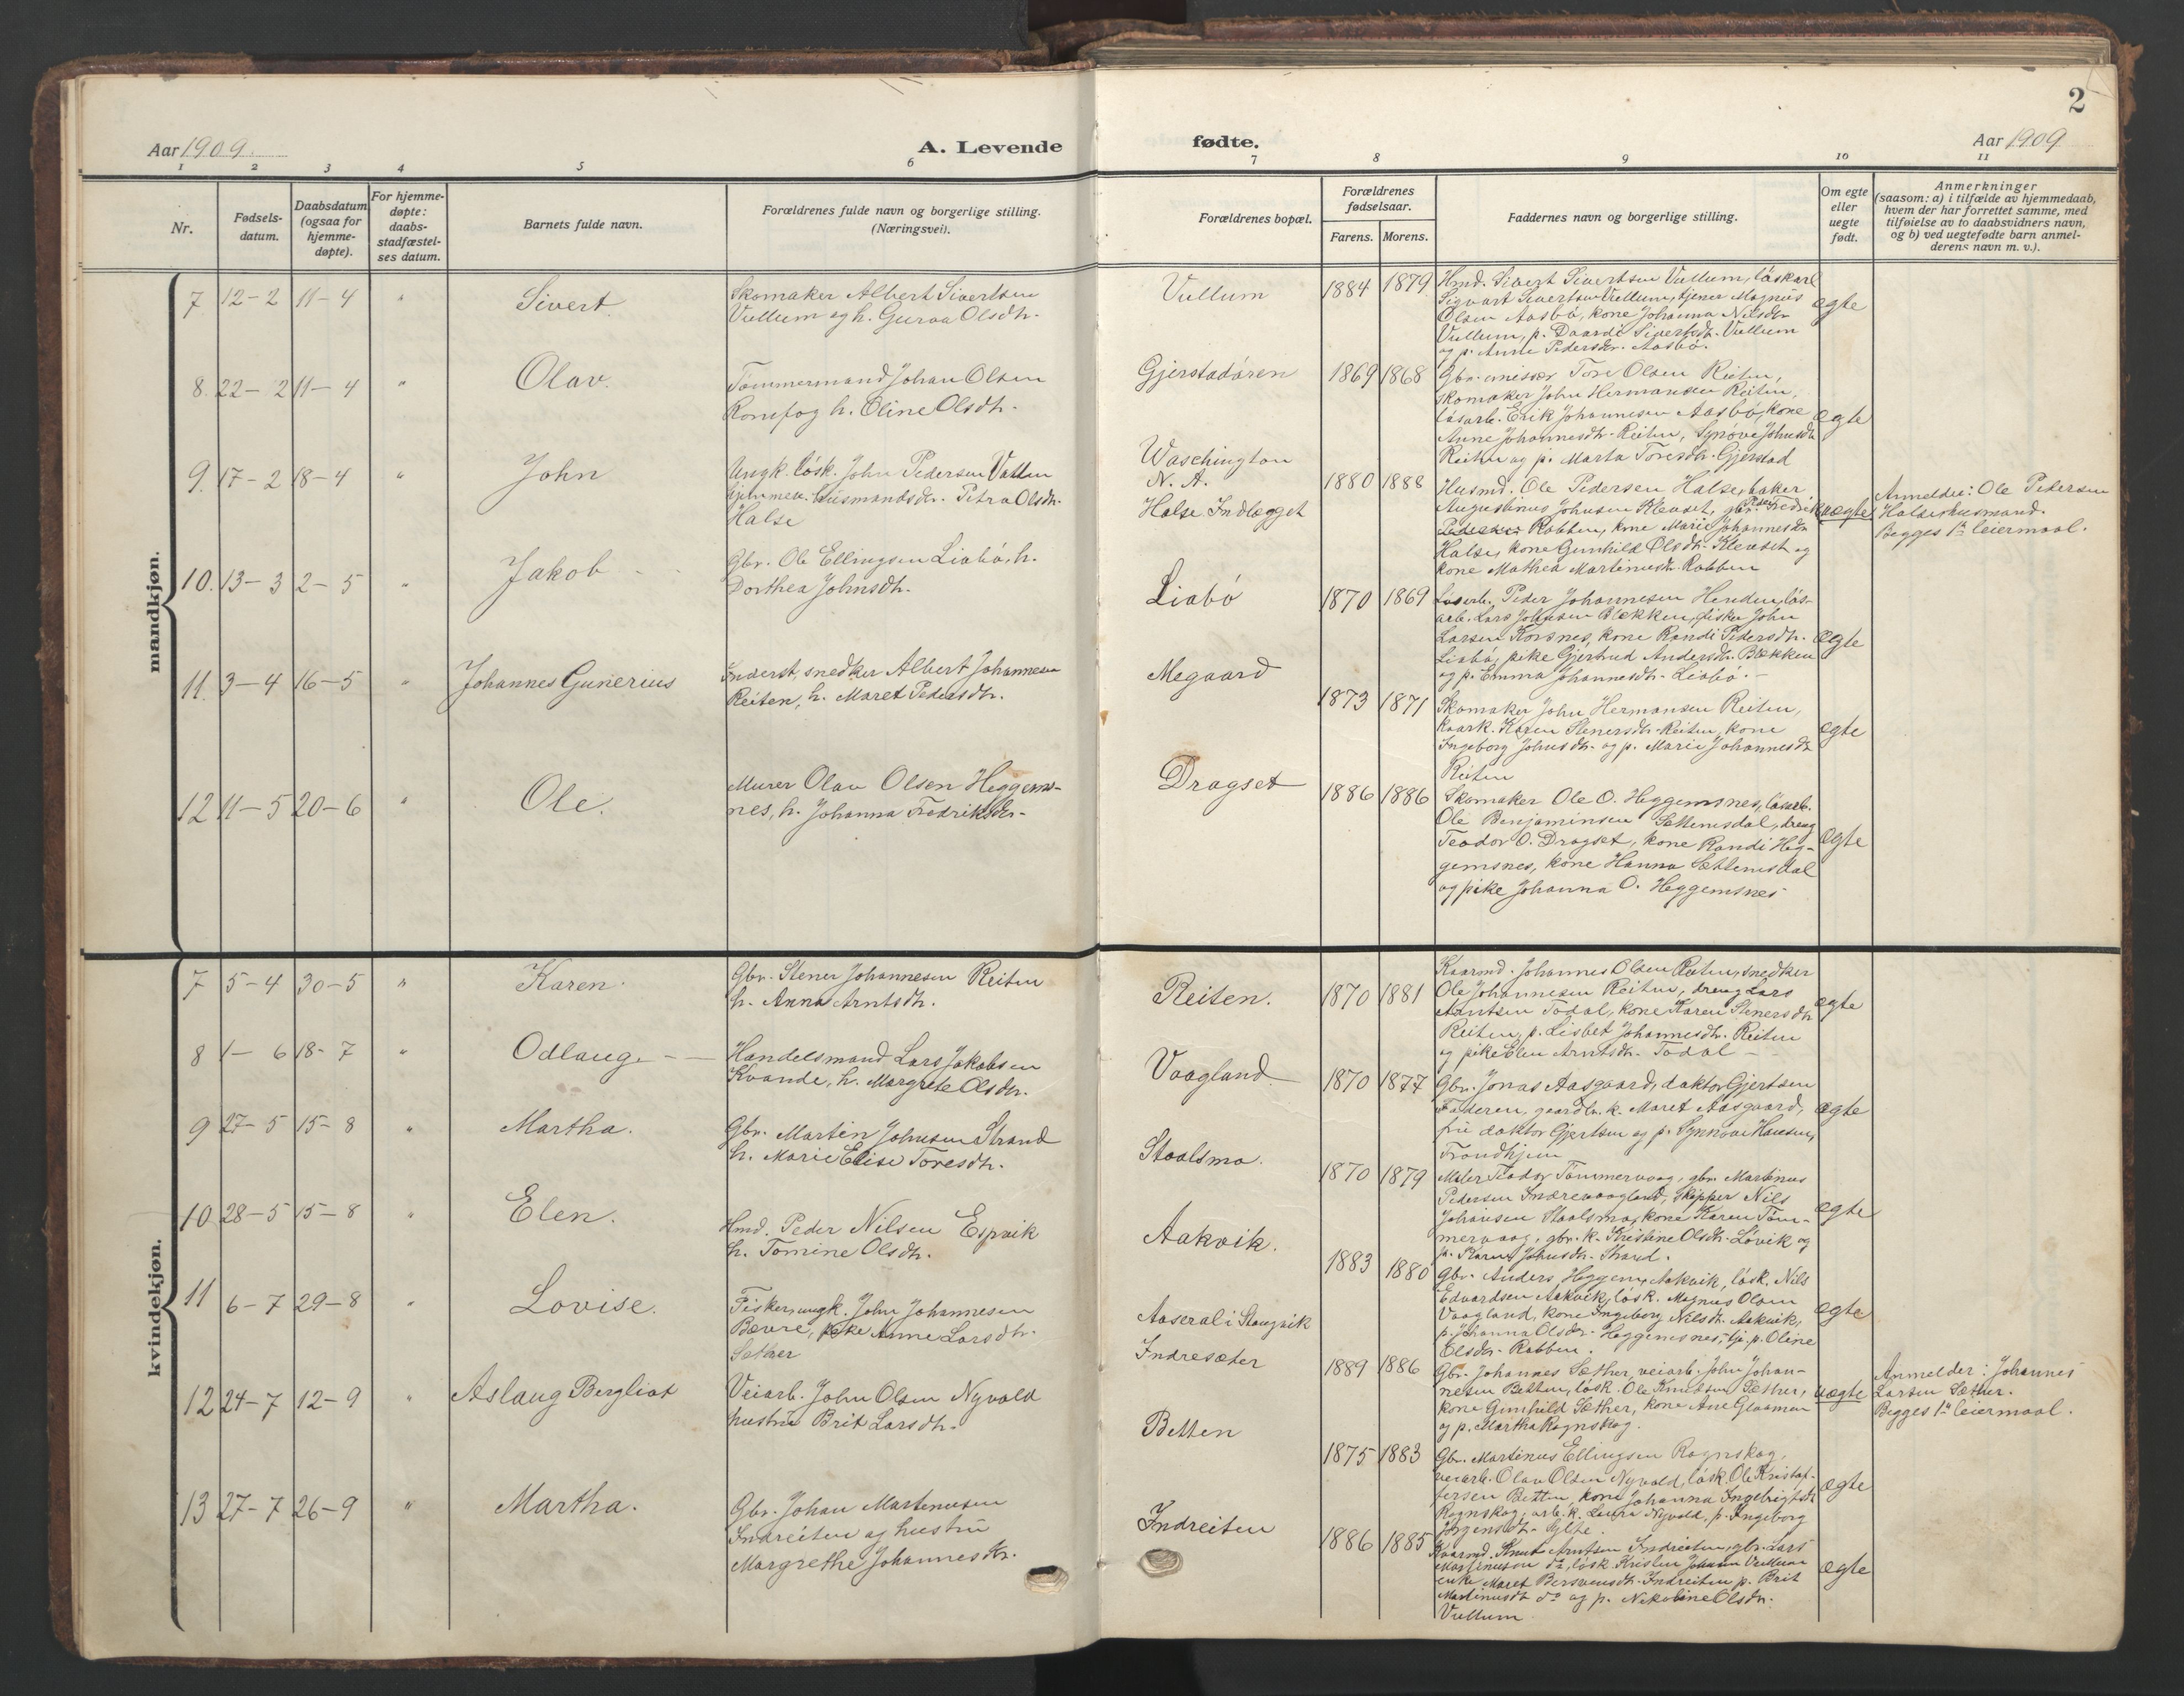 2
Aar 1909 A. Levende fødte. Aar 1909
1 2 3 4 5 6 7 8 9 10 11
Nr.
Fødsels-
datum.
Daabsdatum
(ogsaa for
hjemme-
døpte).
For hjemme-
døpte:
daabs-
stadfæstel-
ses datum.
Barnets fulde navn.
Forældrenes fulde navn og borgerlige stilling.
(Næringsvei).
Forældrenes bopæl.
Forældrenes
fødselsaar.
Farens. Morens.
Faddernes navn og borgerlige stilling.
Om egte
eller
uegte
født.
Anmerkninger
(saasom: a) i tilfælde av hjemmedaab,
hvem der har forrettet samme, med
tilføielse av to daabsvidners navn,
og b) ved uegtefødte barn anmel-
derens navn m. v.).
mandkjøn.
7 12-2 11-4 " Sivert.
Skomaker Albert Sivertsen
Vullum og h. Guroa Olsdtr.
Vullum 1884 1879
Hmd. Sivert Sivertsen Vullum, løskarl
Sigvart Sivertsen Vullum, tjener Magnus
Olsen Aasbø, kone Johanna Nilsdtr
Vullum, p. Daardi Sivertsdtr. Vullum
og p. Anne Pedersdtr. Aasbø.
egte
8. 22-2 11-4 " Olav.
Tømmermand Johan Olsen
Romfog h. Oline Olsdtr.
Gjerstadøren 1869 1868
Gbr. Tore Olsen Reiten,
skomaker John Hermansen Reiten,
løsarb. Erik Johannesen Aasbø, kone
Anne Johannesdtr. Reiten, Synøve Johnsdtr
Reiten og p. Marta Toresdtr. Gjerstad
egte
9. 17-2 18-4 " John
Ungk. løsk. John Pedersen Vatten
hjemmev. husmandsdtr. Petra Olsdtr.
Halse
Waschington
N. A.
Halse Indlægget
1880 1888
Husmd. Ole Pedersen Halse, baker
Augustinus Johnsen Klevset, gbr. Peder Fredrik
Pedersen Rabben, kone Marie Johannesdtr
Halse, kone Gunhild Olsdtr. Klevset og
kone Mathea Martinusdtr. Rabben
uegte
Anmelder: Ole Pedersen
Halse, husmand.
Begges 1ste leiermaal.
10. 13-3 2-5 " Jakob
Gbr. Ole Ellingsen Liabø, h.
Dorthea Johnsdtr.
Liabø 1870 1869
Løsarb. Peder Johannesen Henden, løs-
arb. Lars Johnsen Bækken, fisker John
Larsen Korsnes, kone Randi Pedersdtr.
Liabø, pike Gjertrud Andersdtr. Bækken
og p. Emma Johannesdtr. Liabø.
egte
11. 3-4 16-5 " Johannes Gunerius
Inderst, snedker Albert Johannesen
Reiten, h. Maret Pedersdtr.
Megaard 1873 1871
Skomaker John Hermansen Reiten,
kaark. Karen Stenersdtr. Reiten, kone
Ingeborg Johnsdtr. og p. Marie Johannesdtr
Reiten
egte
12 11-5 20-6 " Ole.
Murer Olav Olsen Heggems-
nes, h. Johanna Fredriksdtr.
Dragset 1886 1886
Skomaker Ole O. Heggemsnes, løsarb.
Ole Benjaminsen Settemsdal, dreng
Teodor O. Dragset, kone Randi Heg-
gemsnes, kone Hanna Settemsdal
og pike Johanna O. Heggemsnes
egte
kvindekjøn.
7 5-4 30-5 " Karen.
Gbr. Stener Johannesen Reiten
h. Anna Arntsdtr.
Reiten. 1870 1881
Kaarmd. Johannes Olsen Reiten, snedker
Ole Johannesen Reiten, dreng Lars
Arntsen Todal, kone Karen Stenersdtr
Reiten, p. Lisbet Johannesdtr. Reiten
og pike Elen Arntsdtr. Todal
egte
8 1-6 18-7 " Odlaug
Handelsmand Lars Jakobsen
Kvande, h. Margrete Olsdtr.
Vaagland 1870 1877
Gbr. Jonas Aasgaard, doktor Gjertsen
Faderen, gaardbr. k. Maret Aasgaard,
frü doktor Gjertsen og p. Synnøve Hansen,
Trondhjem
egte
9 27-5 15-8 " Martha.
Gbr. Martin Johnsen Strand
h. Marie Elise Toresdtr.
Staalsmo. 1870 1879
Maler Teodor Tømmervaag, gbr. Martinus
Pedersen Indrevaagland, skipper Nils
Johansen Staalsmo, kone Karen Tøm-
mervaag, gbr. k. Kristine Olsdtr. Løvik og
p. Karen Johnsdtr. Strand.
egte
10. 28-5 15-8 " Elen.
Hmd. Peder Nilsen Espvik
h. Tomine Olsdtr.
Aakvik. 1883 1880
Gbr. Anders Heggem, Aakvik, løsk. Nils
Edvardsen Aakvik, løsk. Magnus Olsen
Vaagland, kone Ingeborg Nilsdtr. Aakvik,
p. Johanna Olsdtr. Heggemsnes, tj. p. Oline
Olsdtr. Rabben.
egte
11 6-7 29-8 " Lovise.
Fisker, ungk. John Johannesen
Bævre, pike Anne Larsdtr.
Sether
Aaseral i Stangvik
Indresæter
1889 1886
Gbr. Johannes Sæther, veiarb. John Johan-
nesen Betten, løsk. Ole Knudsen Sæther,
kone Gunhild Sæther, kone Ane Glaamen
og p. Martha Rognskog.
uegte
Anmelder: Johannes
Larsen Sæther.
Begges 1ste leiermaal.
12 24-7 12-9 " Aslaug Bergliot
Veiarb. John Olsen Nyvold
hustrü Brit Larsdtr.
Betten 1875 1883
Gbr. Martinus Ellingsen Rognskog,
veiarb. Olav Olsen Nyvold, løsk. Ole Kristof-
fersen Betten, kone Johanna Ingebrigtsdtr
Rognskog, arb. k. Laura Nyvold, p. Ingeborg
Jørgensdtr. Sylte.
egte
13 27-7 26-9 " Martha.
Gbr. Johan Martinusen
Indreiten og hustrü
Margrethe Johannesdtr.
Indreiten 1886 1885
Kaarmd. Knut Arntsen Indreiten, gbr. Lars
Martinussen do, løsk. Kristen Johnsen Vullum
enke Maret Bersvensdtr. Indreiten p. Brit
Martinusdtr do og p. Nikoline Olsdtr.
Vullum
egte